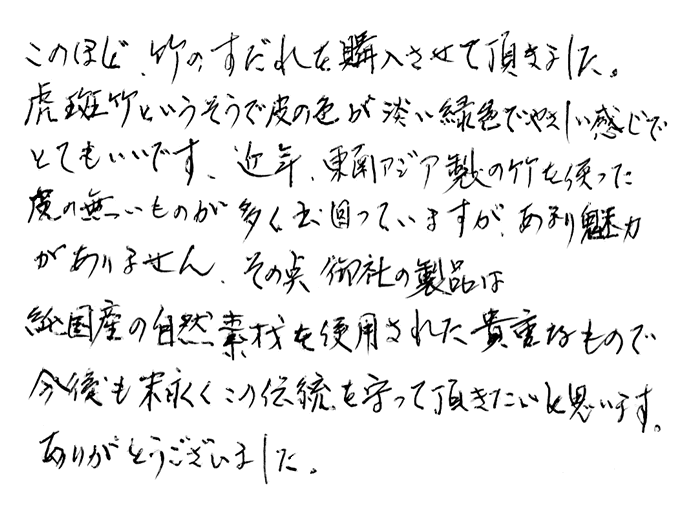 このほど、竹のすだれを購入させて頂きました。
虎斑竹というそうで皮の色が淡い緑色でやさしい感じで
とてもいいです、近年、東南アジア製の竹を使った
皮の無いものが多く出回っていますが、あまり魅力
がありません、その点御社の製品は
純国産の自然素材を使用された貴重なもので
今後も末永くこの伝統を守って頂きたいと思います。
ありがとうございました。